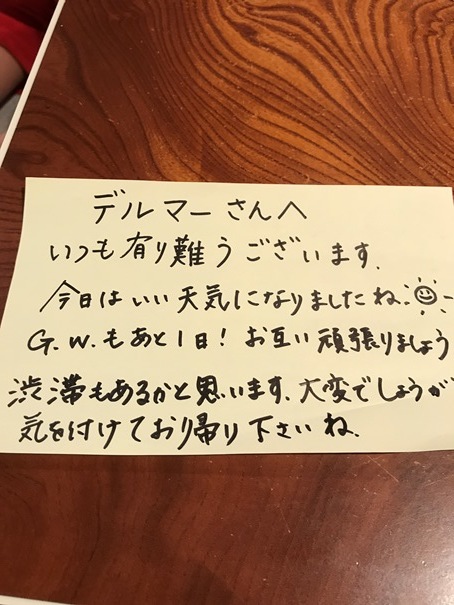 デルマーさんへ
いつも有り難うございます.
今日はいい天気になりましたね.
G.W.もあと1日! お互い頑張りましょう
渋滞もあるかと思います.大変でしょうが
気を付けており帰り下さいね.